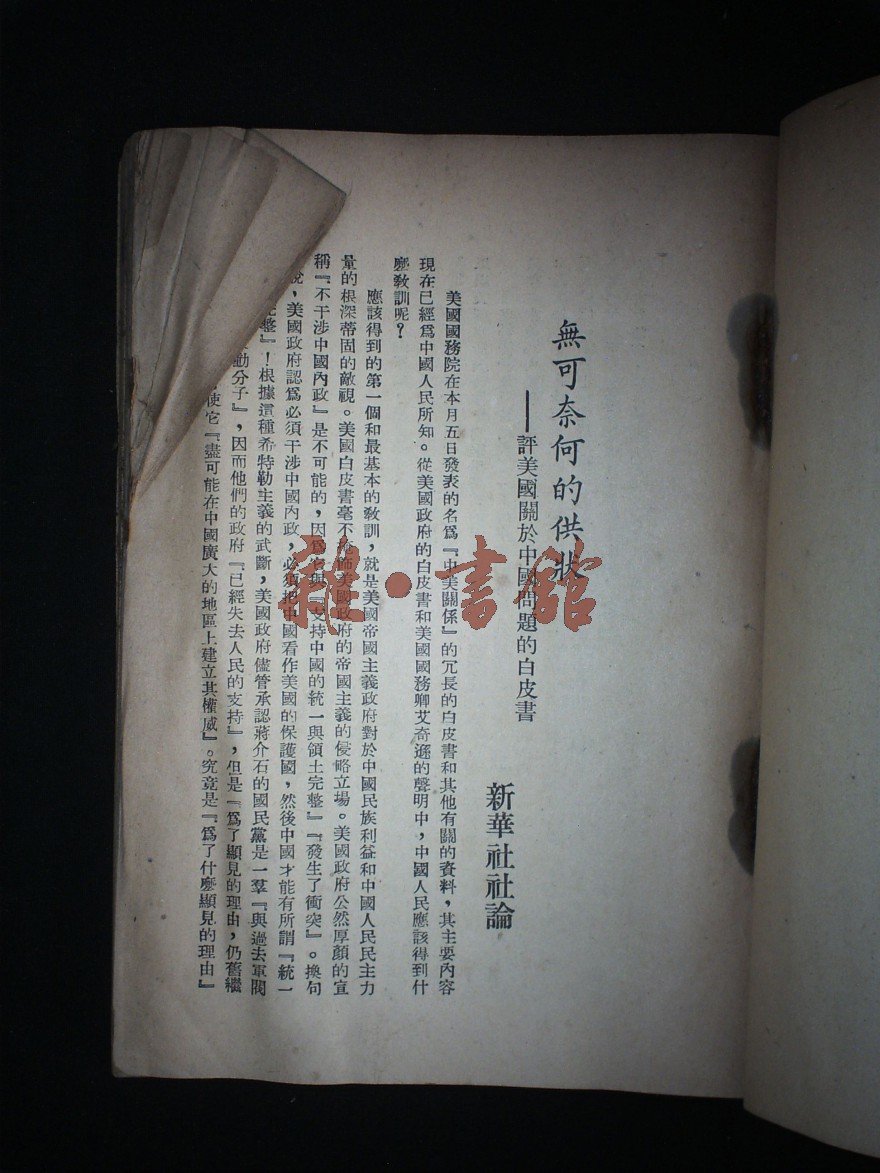 無可奈何的供狀
——評美國關於中國問題的白皮書
新華社社論
美國國務院在本月五日發表的名爲『中美關係』的冗長的白皮書和其他有關的資料，其主要內容
現在已經爲中國人民所知。從美國政府的白皮書和美國國務卿艾奇遜的聲明中，中國人民應該得到什
麼敎訓呢？
應該得到的第一個和最基本的敎訓，就是美國帝國主義政府對於中國民族利益和中國人民民主力
量的根深蒂固的敵視。美國白皮書毫不掩飾美國政府的帝國主義的侵略立場。美國政府公然厚顏的宣
稱『不干涉中國內政』是不可能的，因爲它與『支持中國的統一與領土完整』『發生了衝突』。換句
說，美國政府認爲必須干涉中國內政，必須把中國看作美國的保護國，然後中國才能有所謂『統一
完整』！根據這種希特勒主義的武斷，美國政府儘管承認蔣介石的國民黨是一羣『與過去軍閥
動分子』，因而他們的政府『已經失去人民的支持』，但是『爲了顯見的理由，仍舊繼
使它『盡可能在中國廣大的地區上建立其權威』。究竟是『爲了什麼顯見的理由』
雜·書館